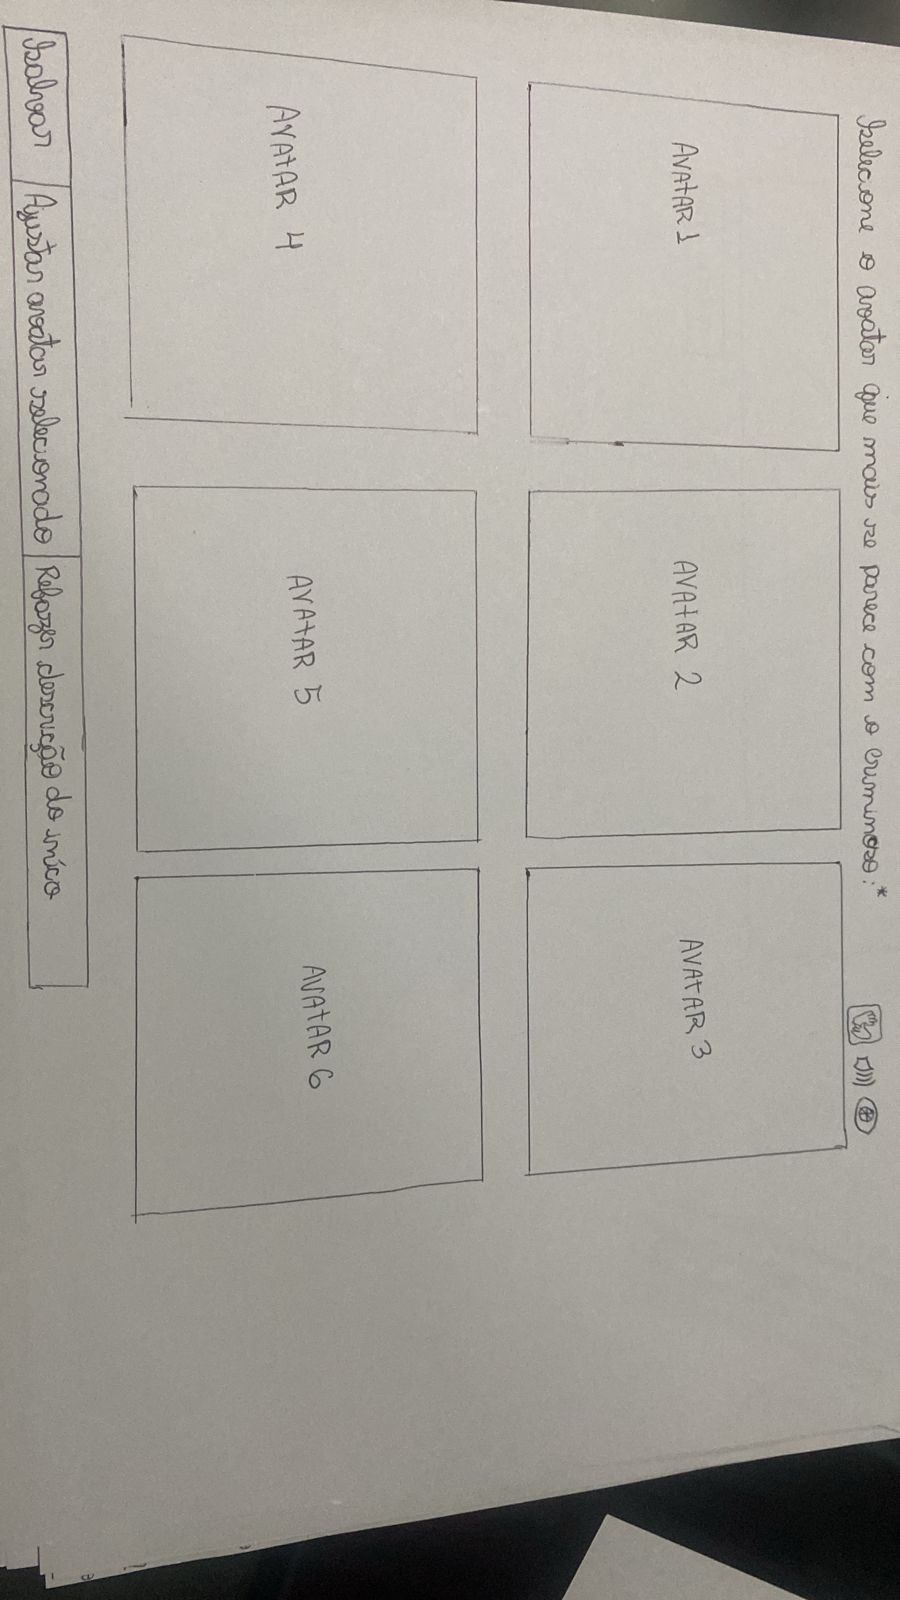 Selecione o avatar que mais se parece com o criminoso:*
AVATAR 1
AVATAR 2
AVATAR 3
AVATAR 4
AVATAR 5
AVATAR 6
Salvar
Ajustar avatar selecionado
Refazer descrição do iníco